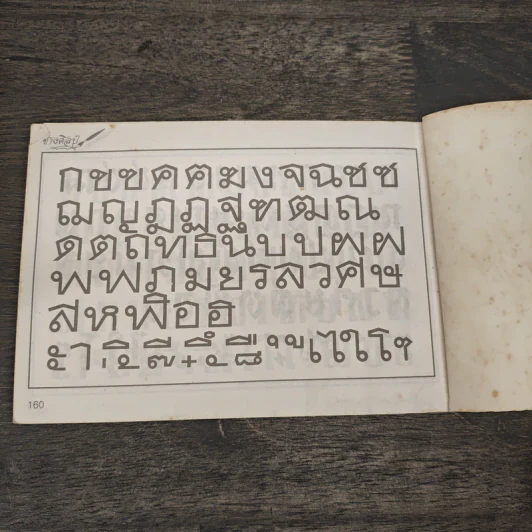 ช่างศิลป์
กขฃคฅฆงจฉชซ
ฌญฎฏฐฑฒณ
ดตถทธนบปผฝ
พฟภมยรลวศษ
สหฬอฮ
เไใโ
160